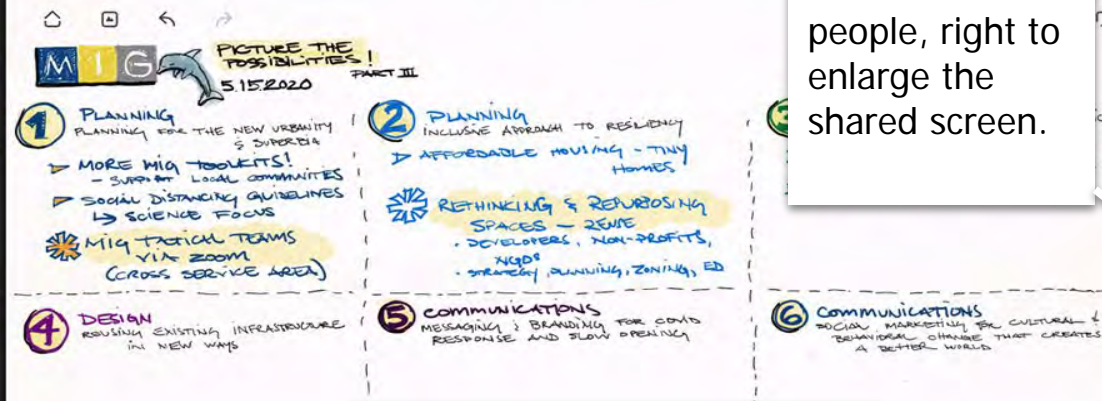 people, right to
enlarge the
shared screen.
MIG
PICTURE THE
POSSIBILITIES!
PART III
5.15.2020
1 PLANNING
PLANNING FOR THE NEW URBANITY
& SUPERBIA
MORE MIG TOOLKITS!
- SUPPORT LOCAL COMMUNITIES
SOCIAL DISTANCING GUIDELINES
↳ SCIENCE FOCUS
MIG TATICAL TEAMS
VIA ZOOM
(CROSS SERVICE AREA)
2 PLANNING
INCLUSIVE APPROACH TO RESILIENCY
AFFORDABLE HOUSING - TINY
HOMES
RETHINKING & REPURPOSING
SPACES - REUSE
• DEVELOPERS, NON-PROFITS,
NGOs
• STRATEGY, PLANNING, ZONING, ED
3
4 DESIGN
REUSING EXISTING INFRASTRUCTURE
IN NEW WAYS
5 COMMUNICATIONS
MESSAGING & BRANDING FOR COVID
RESPONSE AND SLOW OPENING
6 COMMUNICATIONS
SOCIAL MARKETING FOR CULTURAL &
BEHAVIORAL CHANGE THAT CREATES
A BETTER WORLD